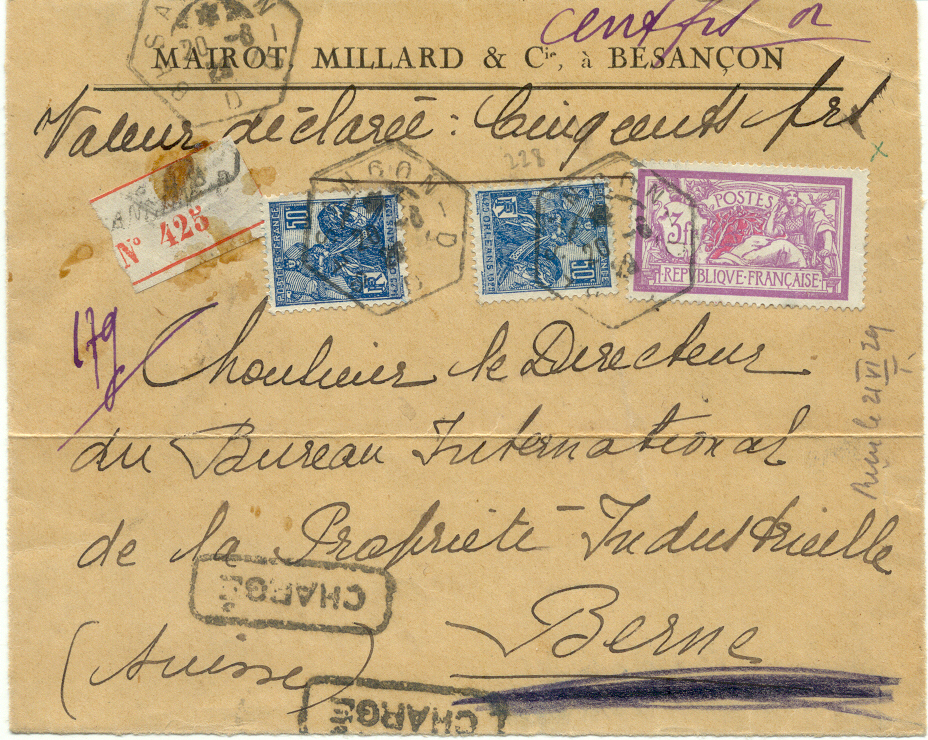 cent frs or
MAIROT, MILLARD & Cie, à BESANÇON
Valeur déclarée : Cinq cents frs
228
N° 425
50c
POSTES
3f
REPVBLIQVE·FRANÇAISE
179
Monsieur le Directeur
du Bureau International
de la Propriété Industrielle
Berne
(Suisse)
CHARGÉ
CHARGÉ
21 VI 29